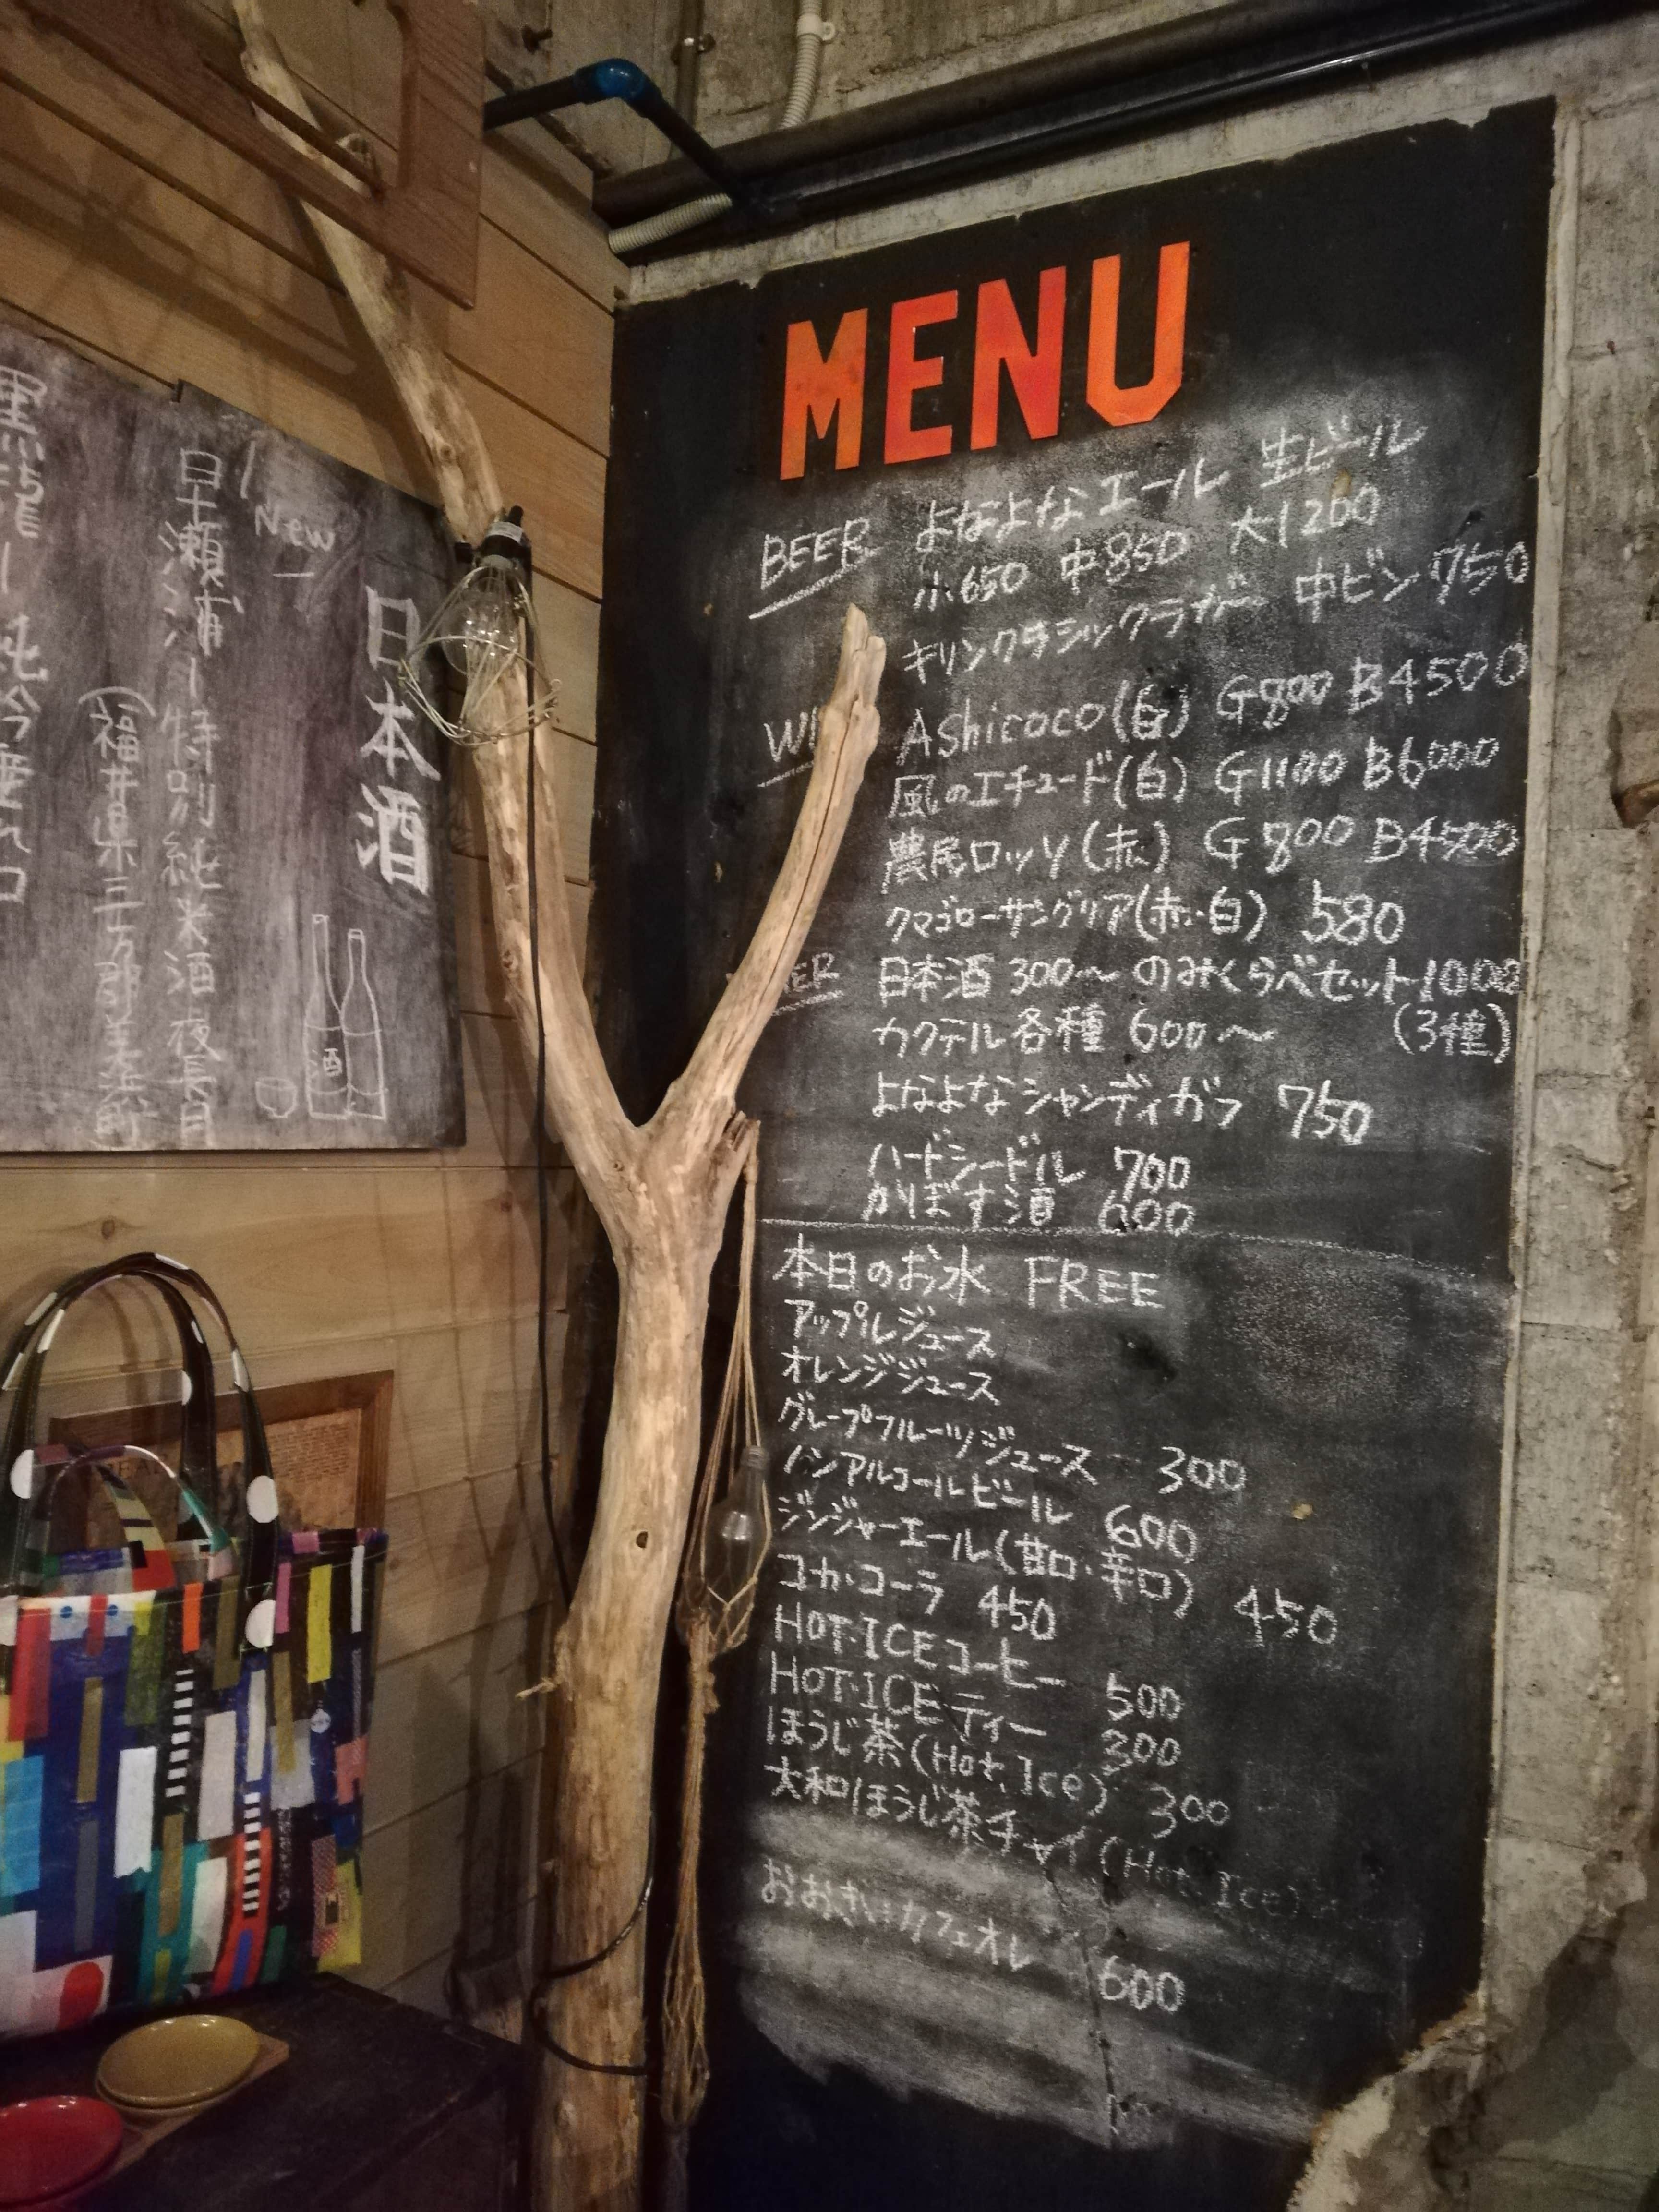 MENU
BEER よなよなエール 生ビール
小650 中850 大1200
キリンクラシックラガー 中ビン750
Ashicoco(白) G800 B4500
風のエチュード(白) G1100 B6000
農民ロッソ(赤) G800 B4500
クマゴローサングリア(赤・白) 580
日本酒 300〜 のみくらべセット1000
カクテル各種 600〜 (3種)
よなよなシャンディガフ 750
ハードシードル 700
かぼす酒 600
本日のお水 FREE
アップルジュース
オレンジジュース
グレープフルーツジュース 300
ノンアルコールビール 600
ジンジャーエール(甘口・辛口) 450
コカ・コーラ 450
HOT・ICEコーヒー 500
HOT・ICEティー 300
ほうじ茶(Hot, Ice) 300
大和ほうじ茶チャイ(Hot, Ice)
カフェオレ 600
日本酒
New
早瀬浦 特別純米酒 夜長月
(福井県三宅彦右衛門
酒
黒龍 純吟